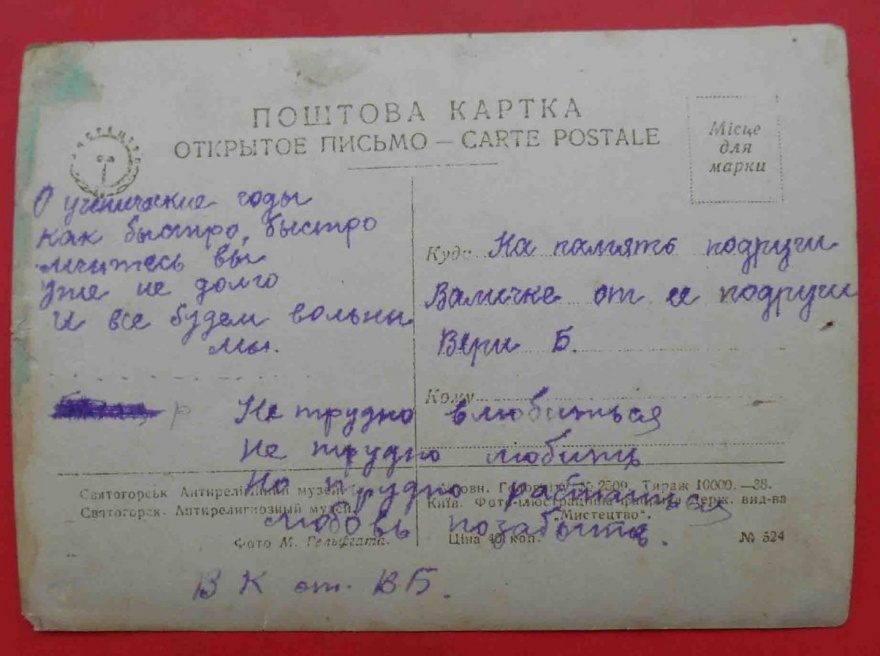 ПОШТОВА КАРТКА
ОТКРЫТОЕ ПИСЬМО — CARTE POSTALE
МИСТЕЦТВО
Місце
для
марки
О ученические годы
как быстро, быстро
мчитесь вы
Уже не долго
И все будем вольны
мы.
Куди На память подруги
Валичке от ее подруги
Веры Б.
Кому
р Не трудно влюбиться
Не трудно любить
Но трудно расстаться
любовь позабыть.
Святогорськ Антирелігійний музей.
Святогорск. Антирелигиозный музей.
Фото М. Гельфгата.
№ 2509. Тираж 10000.—38.
Київ. держ. вид-ва
"Мистецтво".
Ціна 40 коп. № 524
В К от. В Б.